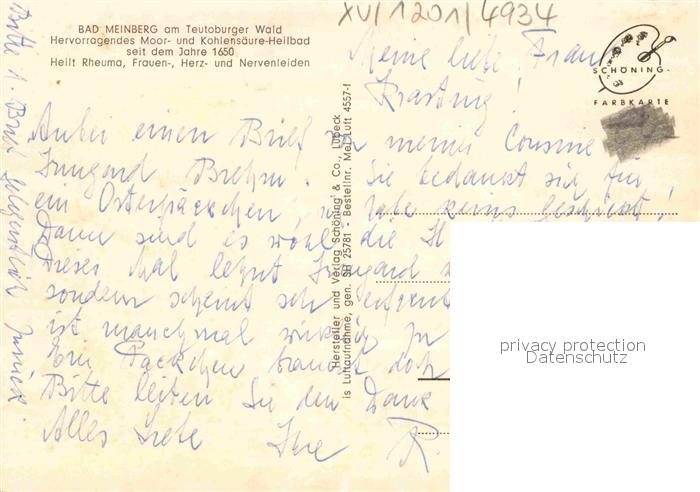 XV/1201/4934
BAD MEINBERG am Teutoburger Wald
Hervorragendes Moor- und Kohlensäure-Heilbad
seit dem Jahre 1650
Heilt Rheuma, Frauen-, Herz- und Nervenleiden
SCHÖNING-
FARBKARTE
Meine liebe Frau
Krasting!
Anbei einen Brief meiner Cousine
Irmgard Brehm. Sie bedankt sich für
ein Osterpäckchen, habe keins geschickt!
Dann sind es wohl die
Dieses Mal Irmgard
sondern scheint sehr
ist manchmal zu
Ein Päckchen doch
Bitte leiten Sie den Dank
Alles Liebe Ihre R.
Bitte 1. Brief gelegentlich zurück
Hersteller und Verlag Schöning & Co., Lübeck
is Luftaufnahme, gen. SH 25781 - Bestellnr. Mei Luft 4557-f
privacy protection
Datenschutz